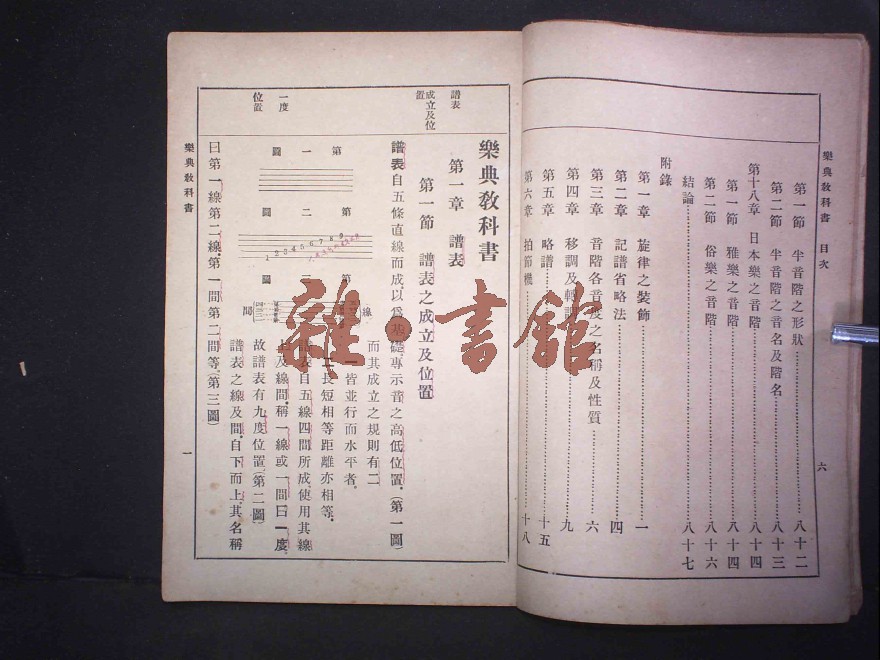 樂典教科書 目次
六
第一節 半音階之形狀 八十二
第二節 半音階之音名及階名 八十三
第十八章 日本樂之音階 八十四
第一節 雅樂之音階 八十四
第二節 俗樂之音階 八十六
結論 八十七
附錄
第一章 旋律之裝飾 一
第二章 記譜省略法 四
第三章 音階各音度之名稱及性質 六
第四章 移調及轉調 九
第五章 略譜 十五
第六章 拍節機 十八
樂典教科書
第一章 譜表
譜表
第一節 譜表之成立及位置
成立及位置
譜表自五條直線而成以爲基礎、專示音之高低位置、(第一圖)
而其成立之規則有二
一皆並行而水平者、
二長短相等距離亦相等、
譜表自五線四間所成、使用其線
及線間、稱一線或一間曰一度、
一度
故譜表有九度位置、(第二圖)
位置
譜表之線及間、自下而上、其名稱
曰第一線第二線、第一間第二間等、(第三圖)
第一圖
第二圖
1 2 3 4 5 6 7 8 9
第三圖
線
間
樂典教科書
一
雜·書館